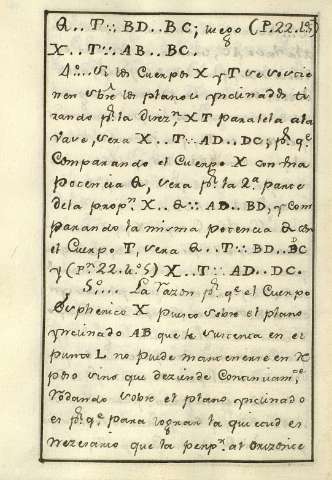 Q.. T∷ BD.. BC; luego (P. 22. l. 5)
X.. T∷ AB.. BC.
4º... Si los Cuerpos X y T se sostie
nen sbre los planos ynclinados ti
rando pr la direzn XT paralela a la
vase, sera X.. T∷ AD.. DC; pr qe
Comparando el Cuerpo X con una
potencia Q, sera pr la 2ª parte
de la propn X.. Q∷ AD.. BD, y Com
parando la misma potencia Q con
el Cuerpo T, sera Q.. T∷ BD.. DC
y (Pn 22. l. 5) X.. T∷ AD.. DC.
5º... La razon pr qe el Cuerpo
Espherico X puesto sobre el plano
ynclinado AB que le sustenta en el
punto L no puede mantenerse en
peso sino que deziende Continuamte
rodando sobre el plano ynclinado
es pr qe para lograr la quietud es
nezesario que la perpr al Orizonte